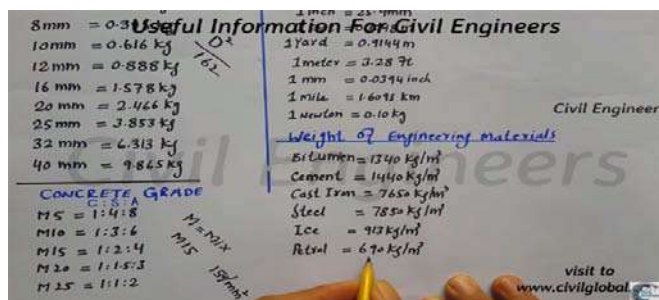 Useful Information For Civil Engineers
8mm = 0.395 kg
10mm = 0.616 kg
12mm = 0.888 kg
16 mm = 1.578 kg
20 mm = 2.466 kg
25 mm = 3.853 kg
32 mm = 6.313 kg
40 mm = 9.865 kg
D²/162
CONCRETE GRADE
C:S:A
M5 = 1:4:8
M10 = 1:3:6
M15 = 1:2:4
M20 = 1:1.5:3
M25 = 1:1:2
M=Mix
M15 15N/mm²
1 inch = 25.4mm
1 Yard = 0.9144m
1 meter = 3.28 ft
1 mm = 0.0394 inch
1 mile = 1.6093 km
1 Newton = 0.10 kg
Weight of Engineering materials
Bitumen = 1340 kg/m³
Cement = 1440 kg/m³
Cast Iron = 7650 kg/m³
Steel = 7850 kg/m³
Ice = 913 kg/m³
Petrol = 690 kg/m³
Civil Engineer
Civil Engineers
visit to
www.civilglobal